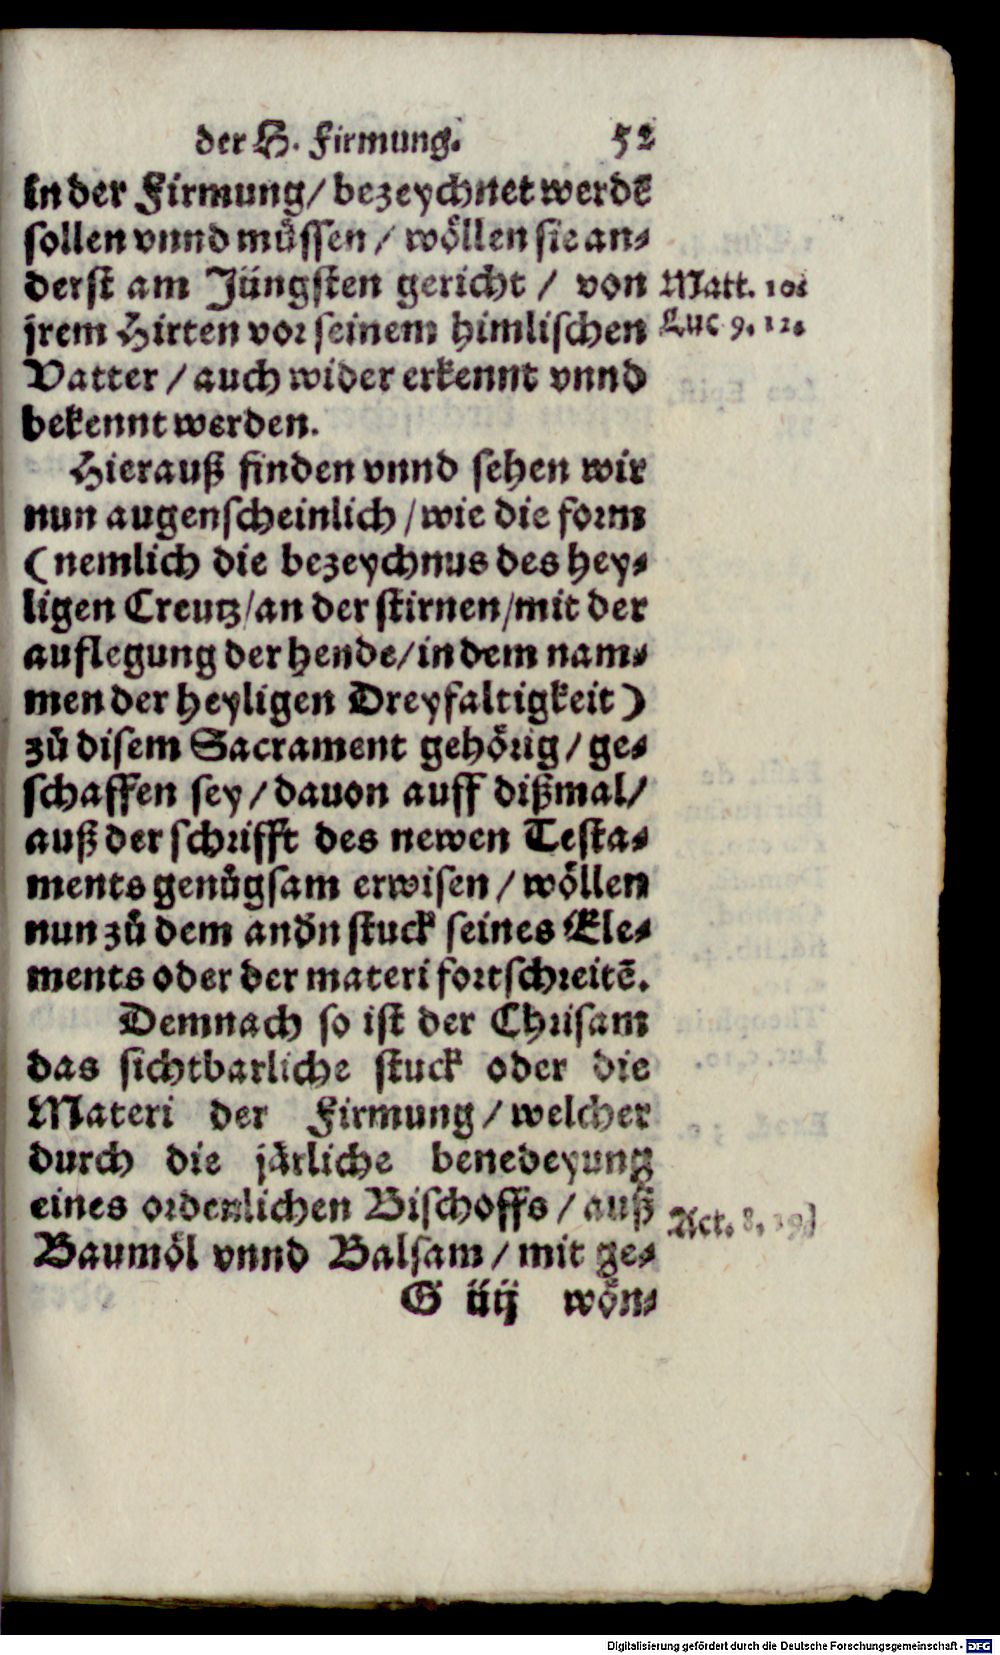 der H. Firmung. 52
in der Firmung / bezeychnet werdē
sollen vnnd müssen / wöllen sie an⸗
derst am Jüngsten gericht / von
Matt. 10.
jrem Hirten vor seinem himlischen
Luc 9. 12.
Vatter / auch wider erkennt vnnd
bekennt werden.
Hierauß finden vnnd sehen wir
nun augenscheinlich / wie die form
(nemlich die bezeychnus des hey⸗
ligen Creutz / an der stirnen / mit der
auflegung der hende / in dem nam⸗
men der heyligen Dreyfaltigkeit)
zů disem Sacrament gehörig / ge⸗
schaffen sey / dauon auff dißmal /
auß der schrifft des newen Testa⸗
ments genůgsam erwisen / wöllen
nun zů dem andn stuck seines Ele⸗
ments oder der materi fortschreitē.
Demnach so ist der Chrisam
das sichtbarliche stuck oder die
Materi der Firmung / welcher
durch die järliche benedeyung
eines ordenlichen Bischoffs / auß
Act. 8. 19.
Baumöl vnnd Balsam / mit ge⸗
G iiij wön⸗
Digitalisierung gefördert durch die Deutsche Forschungsgemeinschaft - DFG